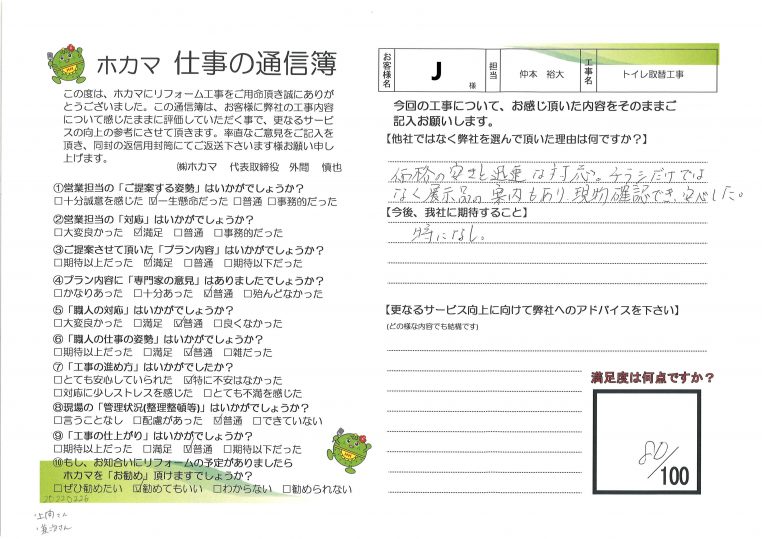 ホカマ 仕事の通信簿
この度は、ホカマにリフォーム工事をご用命頂き誠にありが
とうございました。この通信簿は、お客様に弊社の工事内容
について感じたままに評価していただく事で、更なるサービ
スの向上の参考にさせて頂きます。率直なご意見をご記入を
頂き、同封の返信用封筒にてご返送下さいます様お願い申し
上げます。
㈱ホカマ 代表取締役 外間 慎也
①営業担当の「ご提案する姿勢」はいかがでしょうか?
□十分誠意を感じた ☑一生懸命だった □普通 □事務的だった
②営業担当の「対応」はいかがでしょうか?
□大変良かった ☑満足 □普通 □事務的だった
③ご提案させて頂いた「プラン内容」はいかがでしょうか?
□期待以上だった ☑満足 □普通 □期待以下だった
④プラン内容に「専門家の意見」はありましたでしょうか?
□かなりあった □十分あった ☑普通 □殆んどなかった
⑤「職人の対応」はいかがでしょうか?
□大変良かった □満足 ☑普通 □良くなかった
⑥「職人の仕事の姿勢」はいかがでしょうか?
□期待以上だった □満足 ☑普通 □雑だった
⑦「工事の進め方」はいかがでしたか?
□とても安心していられた ☑特に不安はなかった
□対応に少しストレスを感じた □とても不満を感じた
⑧現場の「管理状況(整理整頓等)」はいかがでしょうか?
□言うことなし □配慮があった ☑普通 □できていない
⑨「工事の仕上がり」はいかがでしょうか?
□期待以上だった □満足 ☑普通 □期待以下だった
⑩もし、お知合いにリフォームの予定がありましたら
ホカマを「お勧め」頂けますでしょうか?
□ぜひ勧めたい ☑勧めてもいい □わからない □勧められない
お客様名 J 様 担当 仲本 裕大 工事名 トイレ取替工事
今回の工事について、お感じ頂いた内容をそのままご
記入お願いします。
【他社ではなく弊社を選んで頂いた理由は何ですか?】
価格の安さと迅速な対応。チラシだけでは
なく展示品の案内もあり、現物確認でき、安心した。
【今後、我社に期待すること】
特になし。
【更なるサービス向上に向けて弊社へのアドバイスを下さい】
(どの様な内容でも結構です)
満足度は何点ですか?
80/100